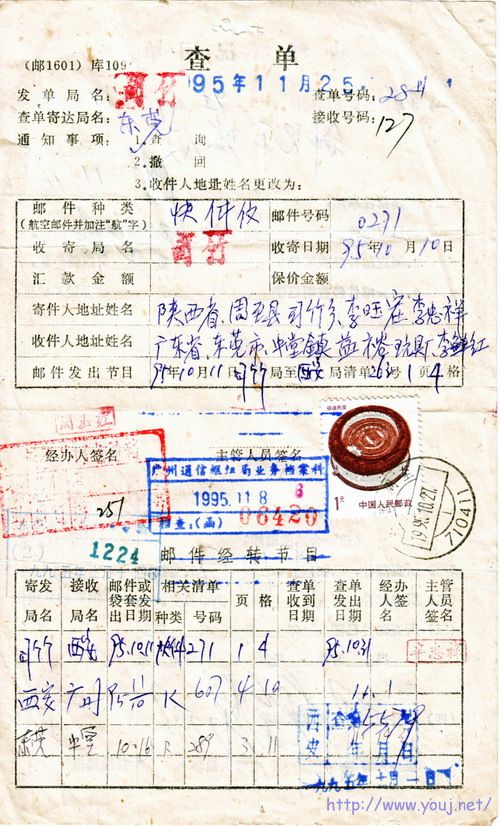 (邮1601) 库109
查 单
95年11月25
发单局名: 司竹
查单号码:
查单寄达局名: 东莞
接收号码: 127
通知事项: 1.查 询
2.撤 回
3.收件人地址姓名更改为:
邮件种类
(航空邮件并加注“航”字)
快件
邮件号码
0271
收寄局名
司竹
收寄日期
95年10月10日
汇款金额
保价金额
寄件人地址姓名
陕西省、周至县司竹乡、李旺寨 李忠祥
收件人地址姓名
广东省、东莞市、中堂镇
邮件发出节目
95年10月11日 司竹 局至 西安 局清单 号 1 4 格
经办人签名
主管人员签名
251
广州通信枢纽局业务档案科
1995.11.8
档查:(函) 06420
(2) 1224
1元
中国人民邮政
1995.10.27
710411
邮件经转节目
寄发局名
接收局名
邮件或袋套发出日期
相关清单
种类 号码
页
格
查单收到日期
查单发出日期
经办人签名
主管人员签名
司竹 西安 95.10.11 271 1 4 95.10.31
西安 广州 607 4 10
东莞 中堂 10.16 R 289 3 11
年 月 日
一九九五年十一月一日
http://www.youj.net/